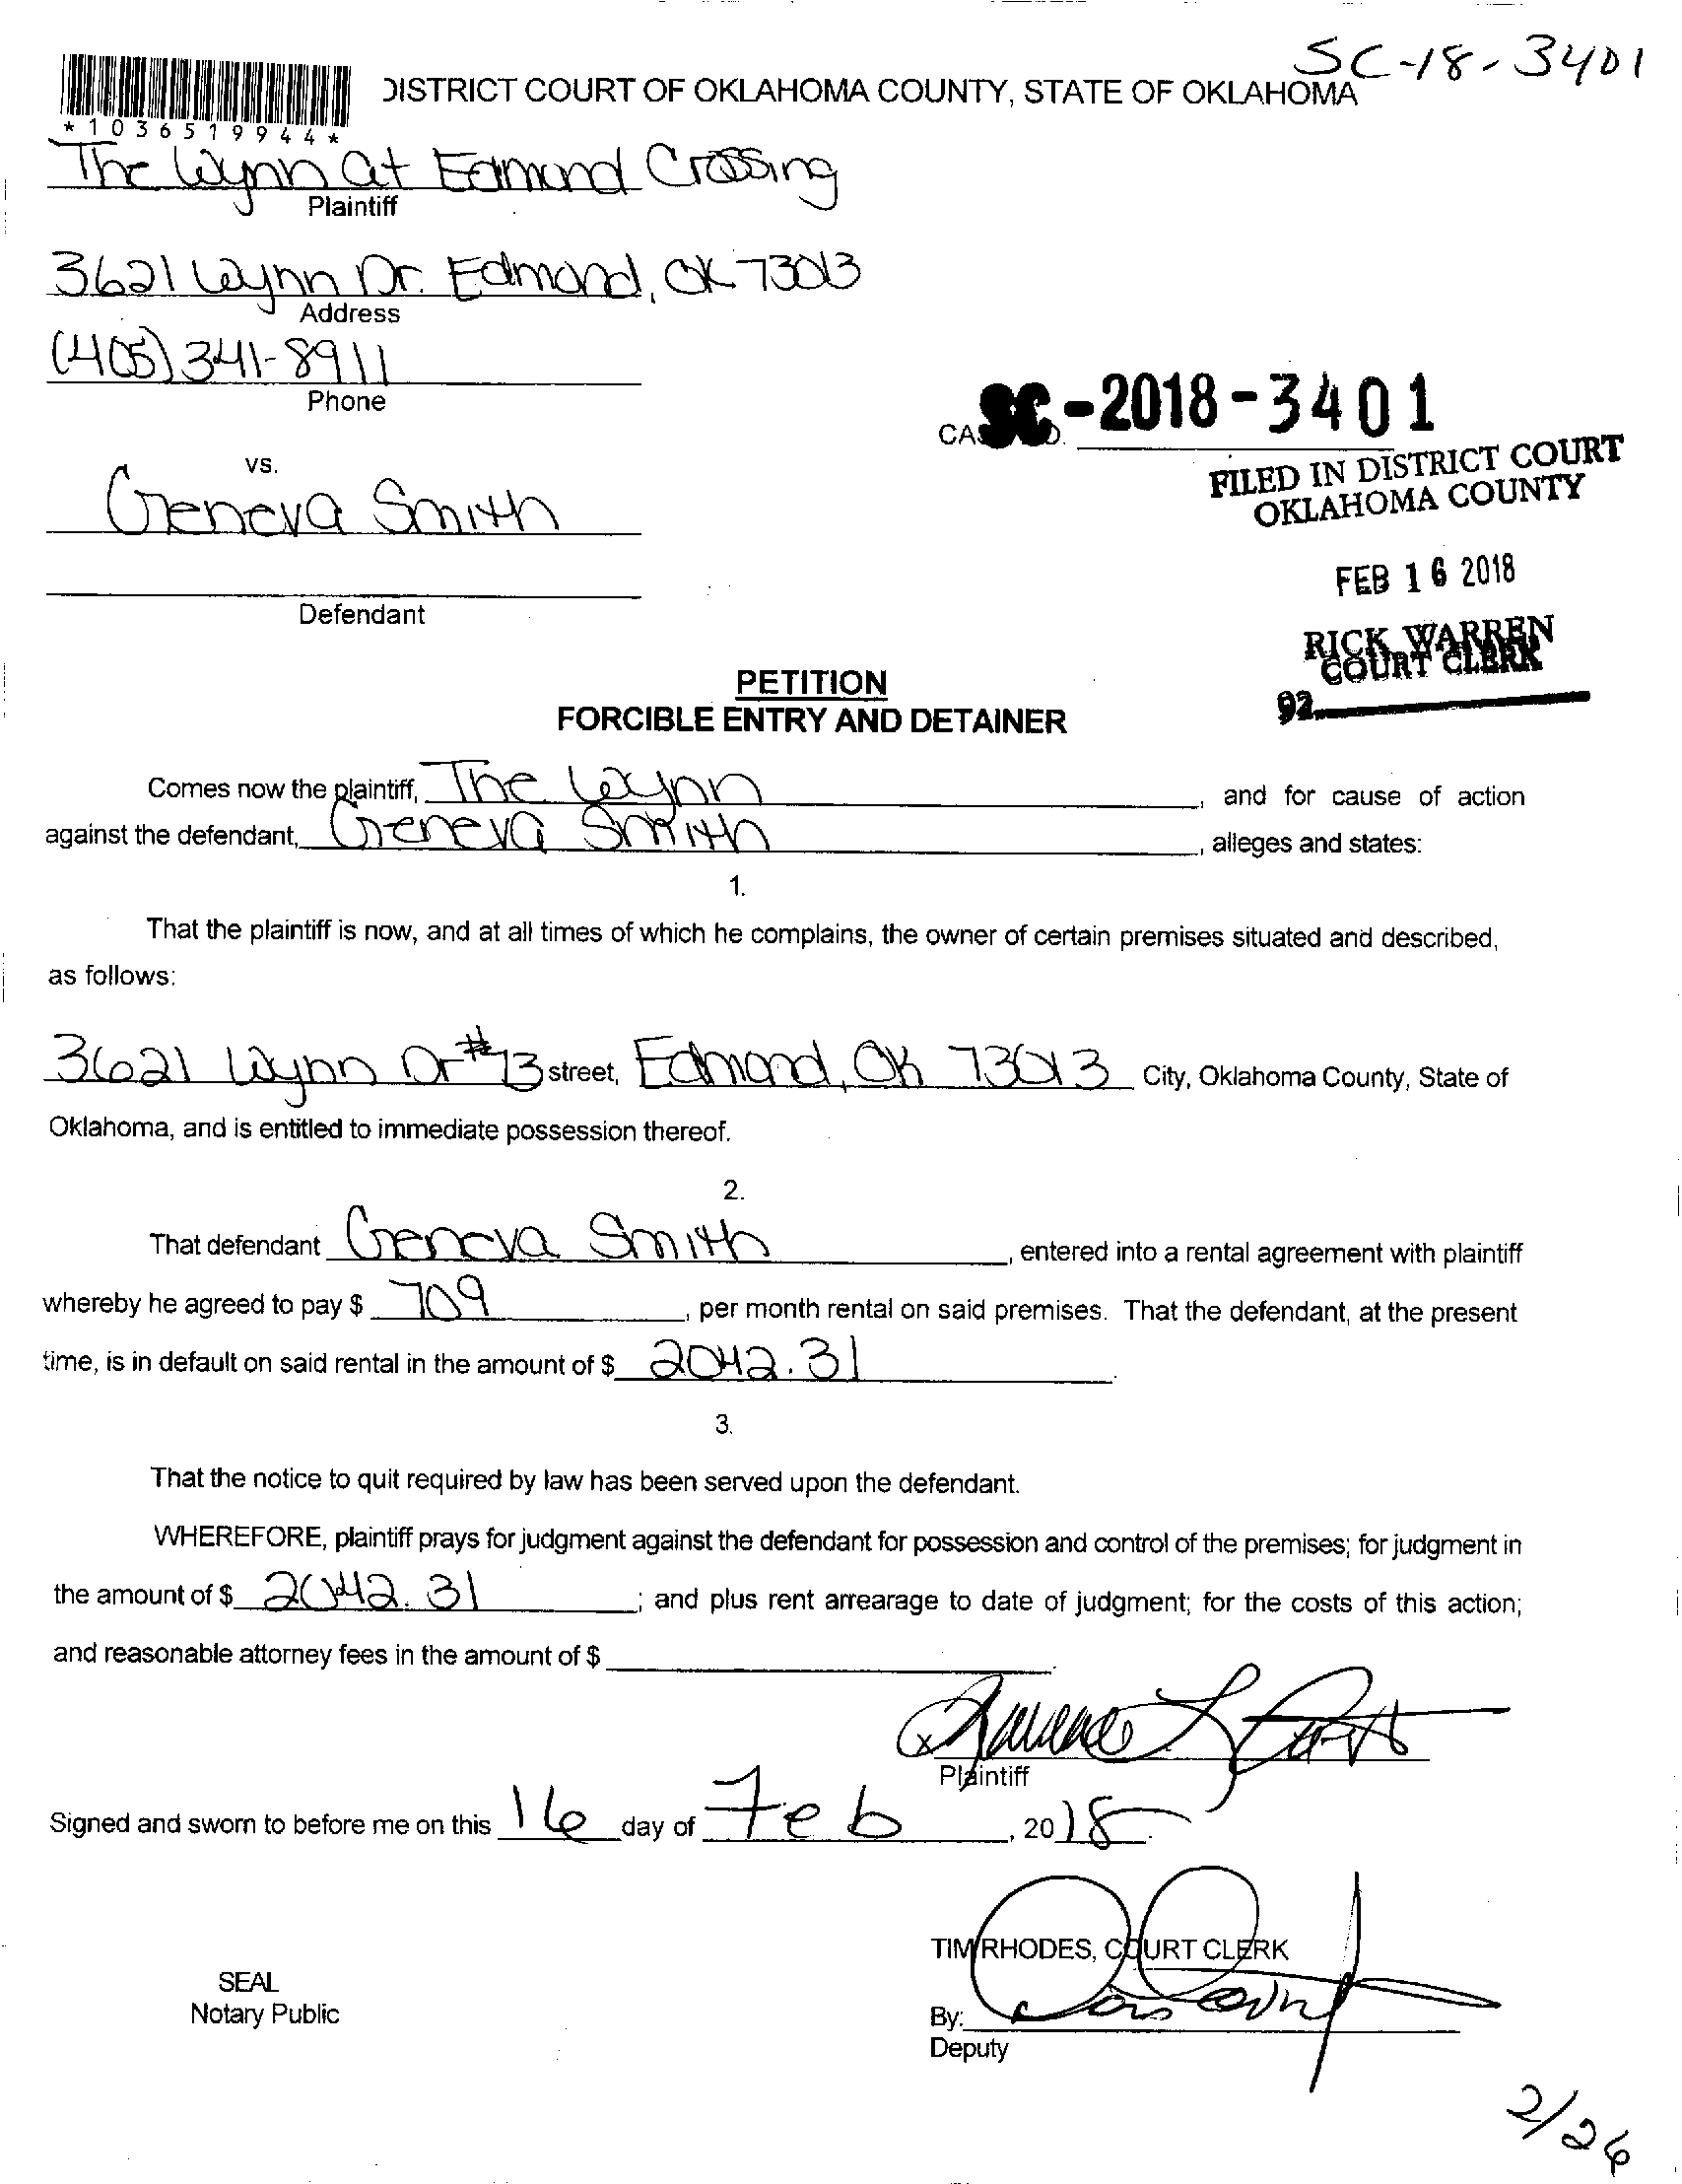 SC-18-3401
DISTRICT COURT OF OKLAHOMA COUNTY, STATE OF OKLAHOMA
*1036519944*
The Wynn at Edmond Crossing
Plaintiff
3621 Wynn Dr. Edmond, OK 73013
Address
(405) 341-8911
Phone
SC-2018-3401
FILED IN DISTRICT COURT
OKLAHOMA COUNTY
vs.
Geneva Smith
FEB 16 2018
Defendant
RICK WARREN
COURT CLERK
92
PETITION
FORCIBLE ENTRY AND DETAINER
Comes now the plaintiff, The Wynn, and for cause of action
against the defendant, Geneva Smith, alleges and states:
1.
That the plaintiff is now, and at all times of which he complains, the owner of certain premises situated and described,
as follows:
3621 Wynn Dr #73 street, Edmond, OK 73013 City, Oklahoma County, State of
Oklahoma, and is entitled to immediate possession thereof.
2.
That defendant Geneva Smith, entered into a rental agreement with plaintiff
whereby he agreed to pay $ 709, per month rental on said premises. That the defendant, at the present
time, is in default on said rental in the amount of $ 2042.31
3.
That the notice to quit required by law has been served upon the defendant.
WHEREFORE, plaintiff prays for judgment against the defendant for possession and control of the premises; for judgment in
the amount of $ 2042.31; and plus rent arrearage to date of judgment; for the costs of this action;
and reasonable attorney fees in the amount of $
x
Plaintiff
Signed and sworn to before me on this 16 day of Feb, 2018
TIM RHODES, COURT CLERK
SEAL
Notary Public
By:
Deputy
2/26